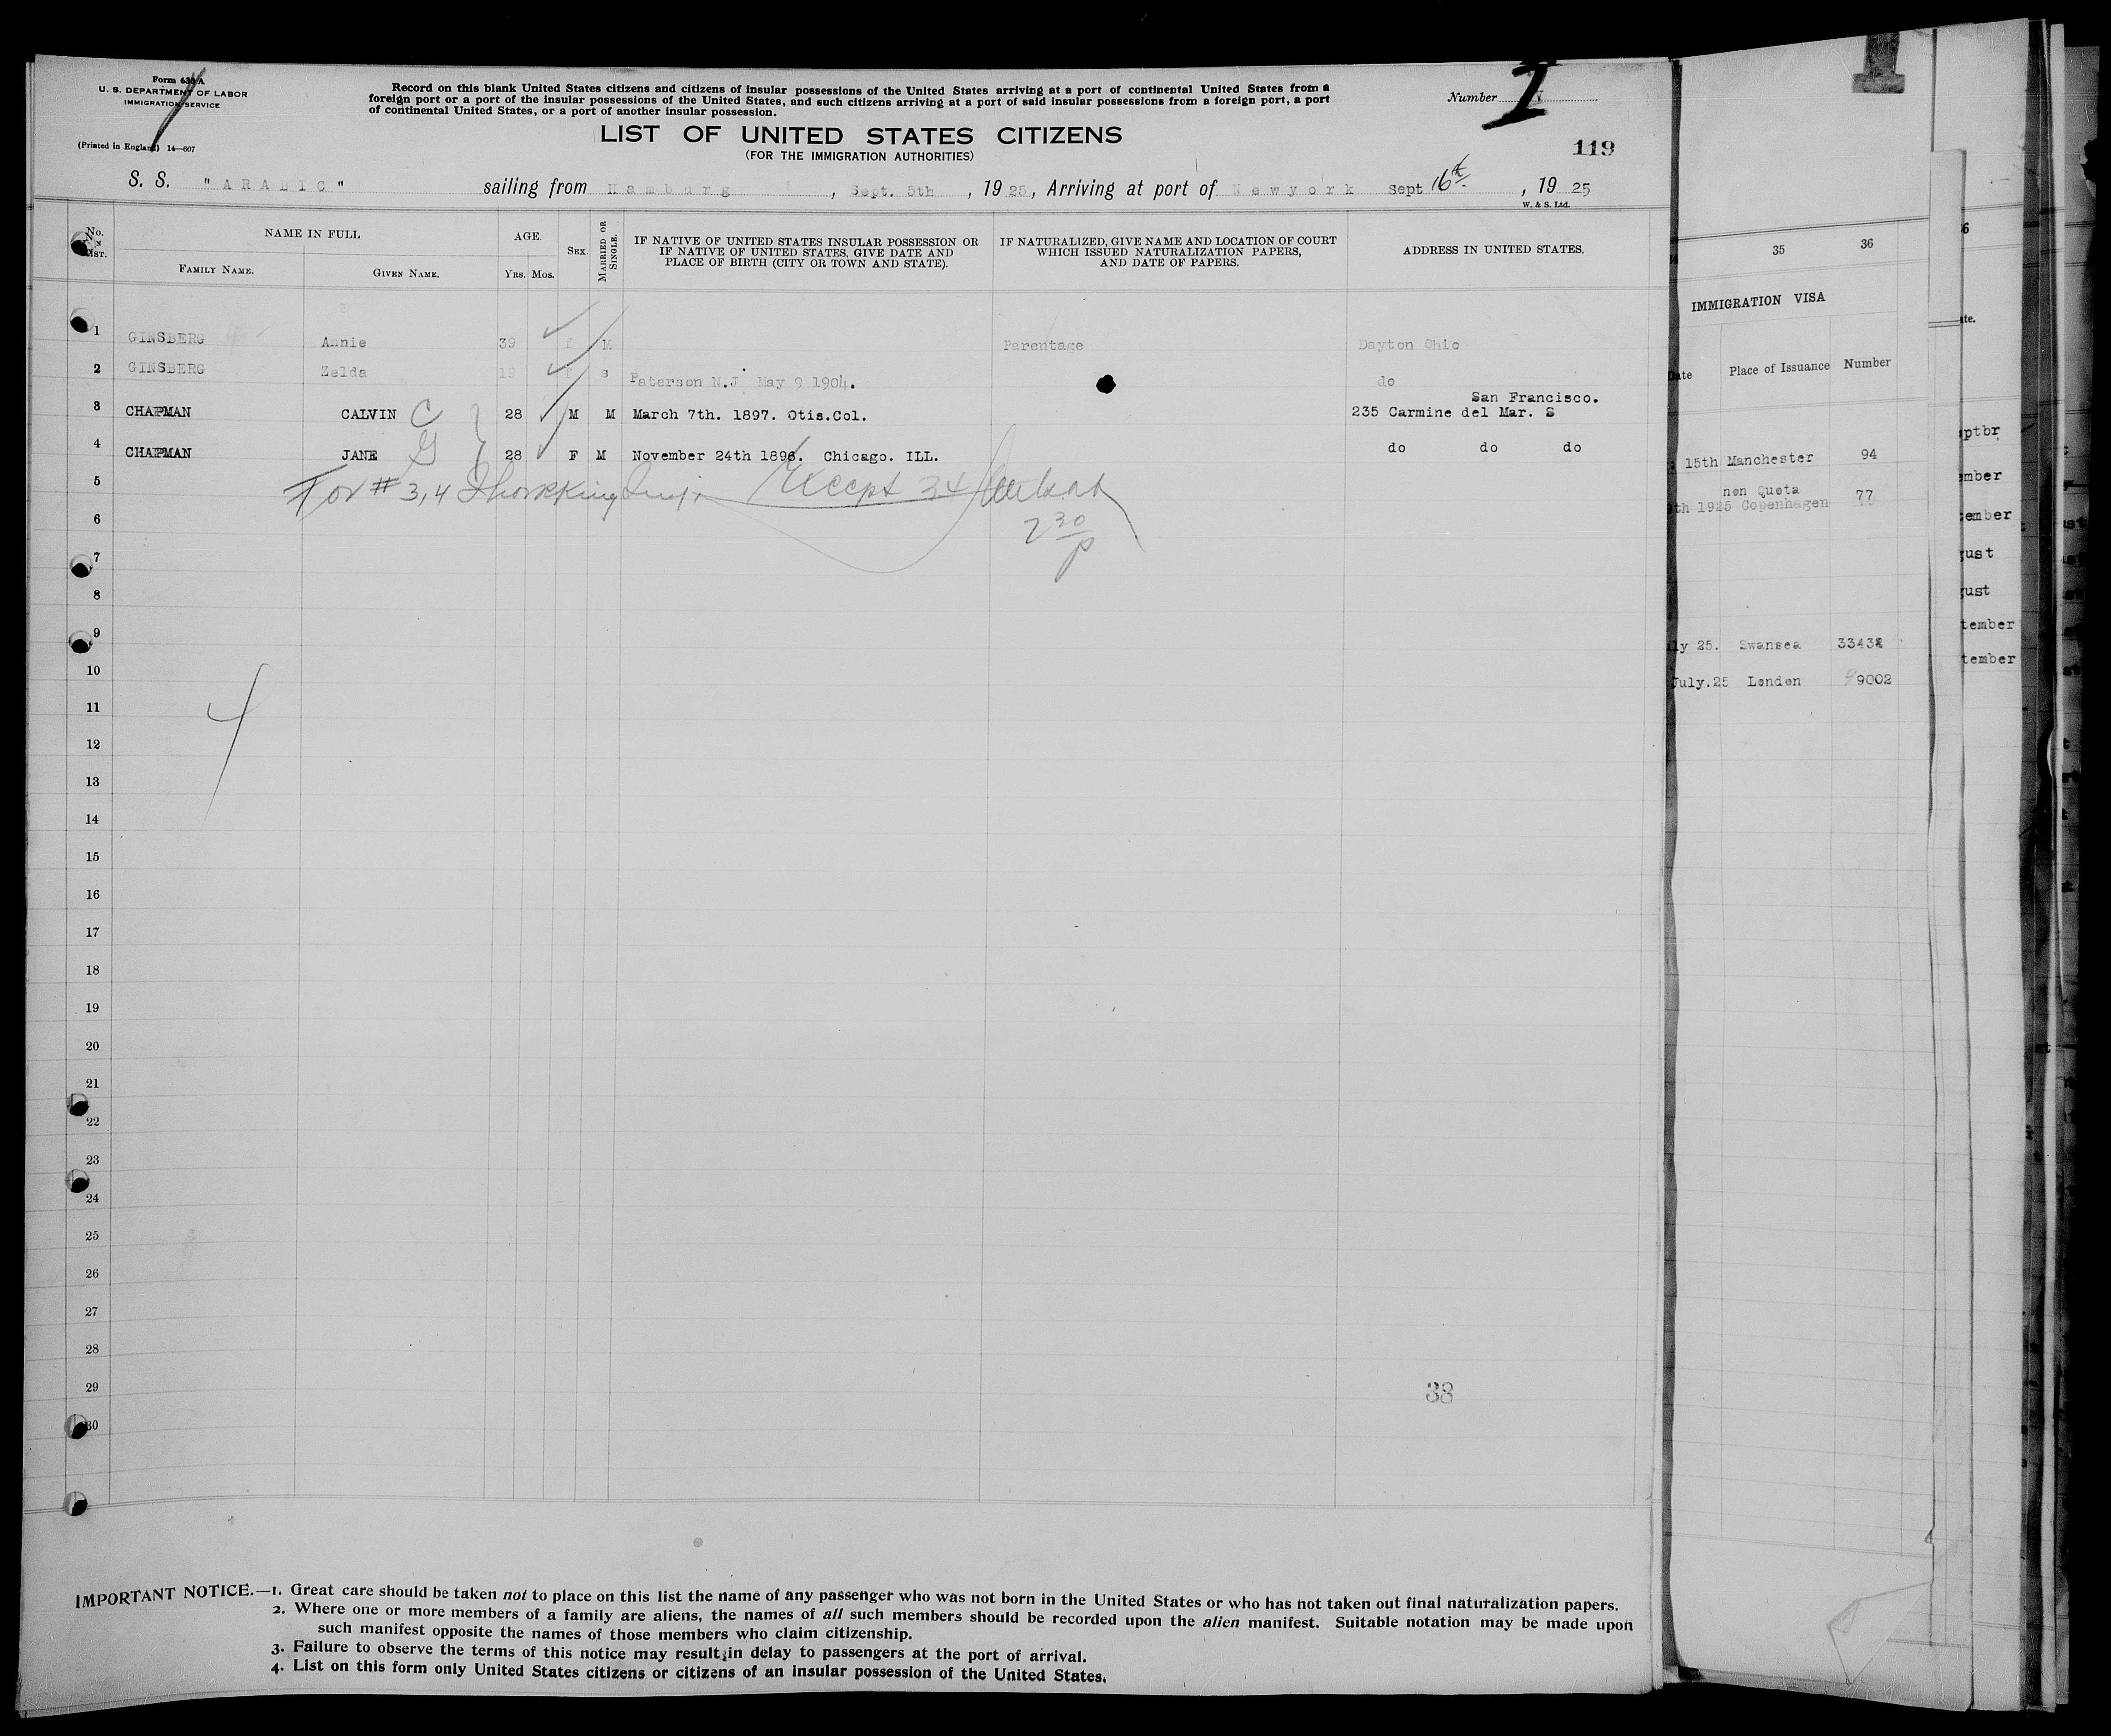 Form 630 A
U. S. DEPARTMENT OF LABOR
IMMIGRATION SERVICE
(Printed in England) 14—607
Record on this blank United States citizens and citizens of insular possessions of the United States arriving at a port of continental United States from a
foreign port or a port of the insular possessions of the United States, and such citizens arriving at a port of said insular possessions from a foreign port, a port
of continental United States, or a port of another insular possession.
Number I
LIST OF UNITED STATES CITIZENS
(FOR THE IMMIGRATION AUTHORITIES)
119
S. S. "ARABIC" sailing from Hamburg, Sept. 5th, 1925, Arriving at port of Newyork Sept 16th, 1925
W. & S. Ltd.
NAME IN FULL
FAMILY NAME. GIVEN NAME.
AGE.
YRS. MOS.
SEX.
MARRIED OR SINGLE.
IF NATIVE OF UNITED STATES INSULAR POSSESSION OR
IF NATIVE OF UNITED STATES, GIVE DATE AND
PLACE OF BIRTH (CITY OR TOWN AND STATE).
IF NATURALIZED, GIVE NAME AND LOCATION OF COURT
WHICH ISSUED NATURALIZATION PAPERS,
AND DATE OF PAPERS.
ADDRESS IN UNITED STATES.
1 GINSBERG Annie 39 f M Parentage Dayton Ohio
2 GINSBERG Zelda 19 f S Paterson N.J. May 9 1904. do
San Francisco.
3 CHAPMAN CALVIN C 28 M M March 7th. 1897. Otis.Col. 235 Carmine del Mar. S
4 CHAPMAN JANE G 28 F M November 24th 1896. Chicago. ILL. do do do
5 For # 3,4 Except 34
6 2 30
p
7
8
9
10
11
4
12
13
14
15
16
17
18
19
20
21
22
23
24
25
26
27
28
29
38
30
IMPORTANT NOTICE.—1. Great care should be taken not to place on this list the name of any passenger who was not born in the United States or who has not taken out final naturalization papers.
2. Where one or more members of a family are aliens, the names of all such members should be recorded upon the alien manifest. Suitable notation may be made upon
such manifest opposite the names of those members who claim citizenship.
3. Failure to observe the terms of this notice may result in delay to passengers at the port of arrival.
4. List on this form only United States citizens or citizens of an insular possession of the United States.
35 36
IMMIGRATION VISA
Date Place of Issuance Number
15th Manchester 94
non Quota
1925 Copenhagen 77
25. Swansea
July.25 London 9002